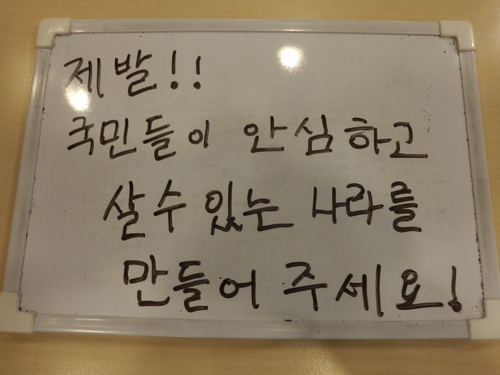 제발!!
국민들이 안심하고
살수 있는 나라를
만들어 주세요!